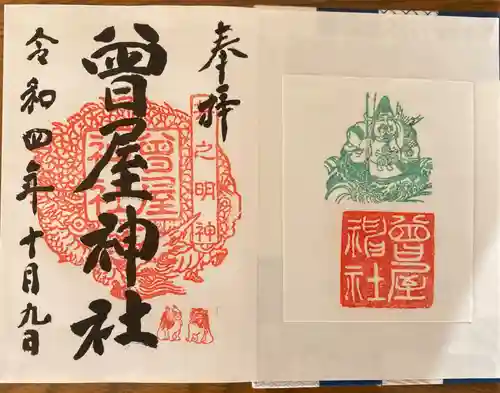 奉拝
之明神
曾屋神社
曾屋神社
令和四年十月九日
曾屋
神社